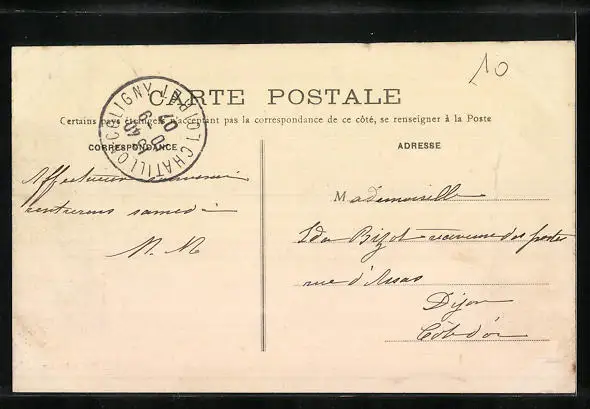 10
CARTE POSTALE
Certains pays étrangers n'acceptant pas la correspondance de ce côté, se renseigner à la Poste
CHATILLON COLIGNY LOIRET
CORRESPONDANCE
ADRESSE
Affectueux souvenir
rentrerons samedi
M. M
Mademoiselle
Ida Bizot receveuse des postes
rue d'Assas
Dijon
Côte d'or